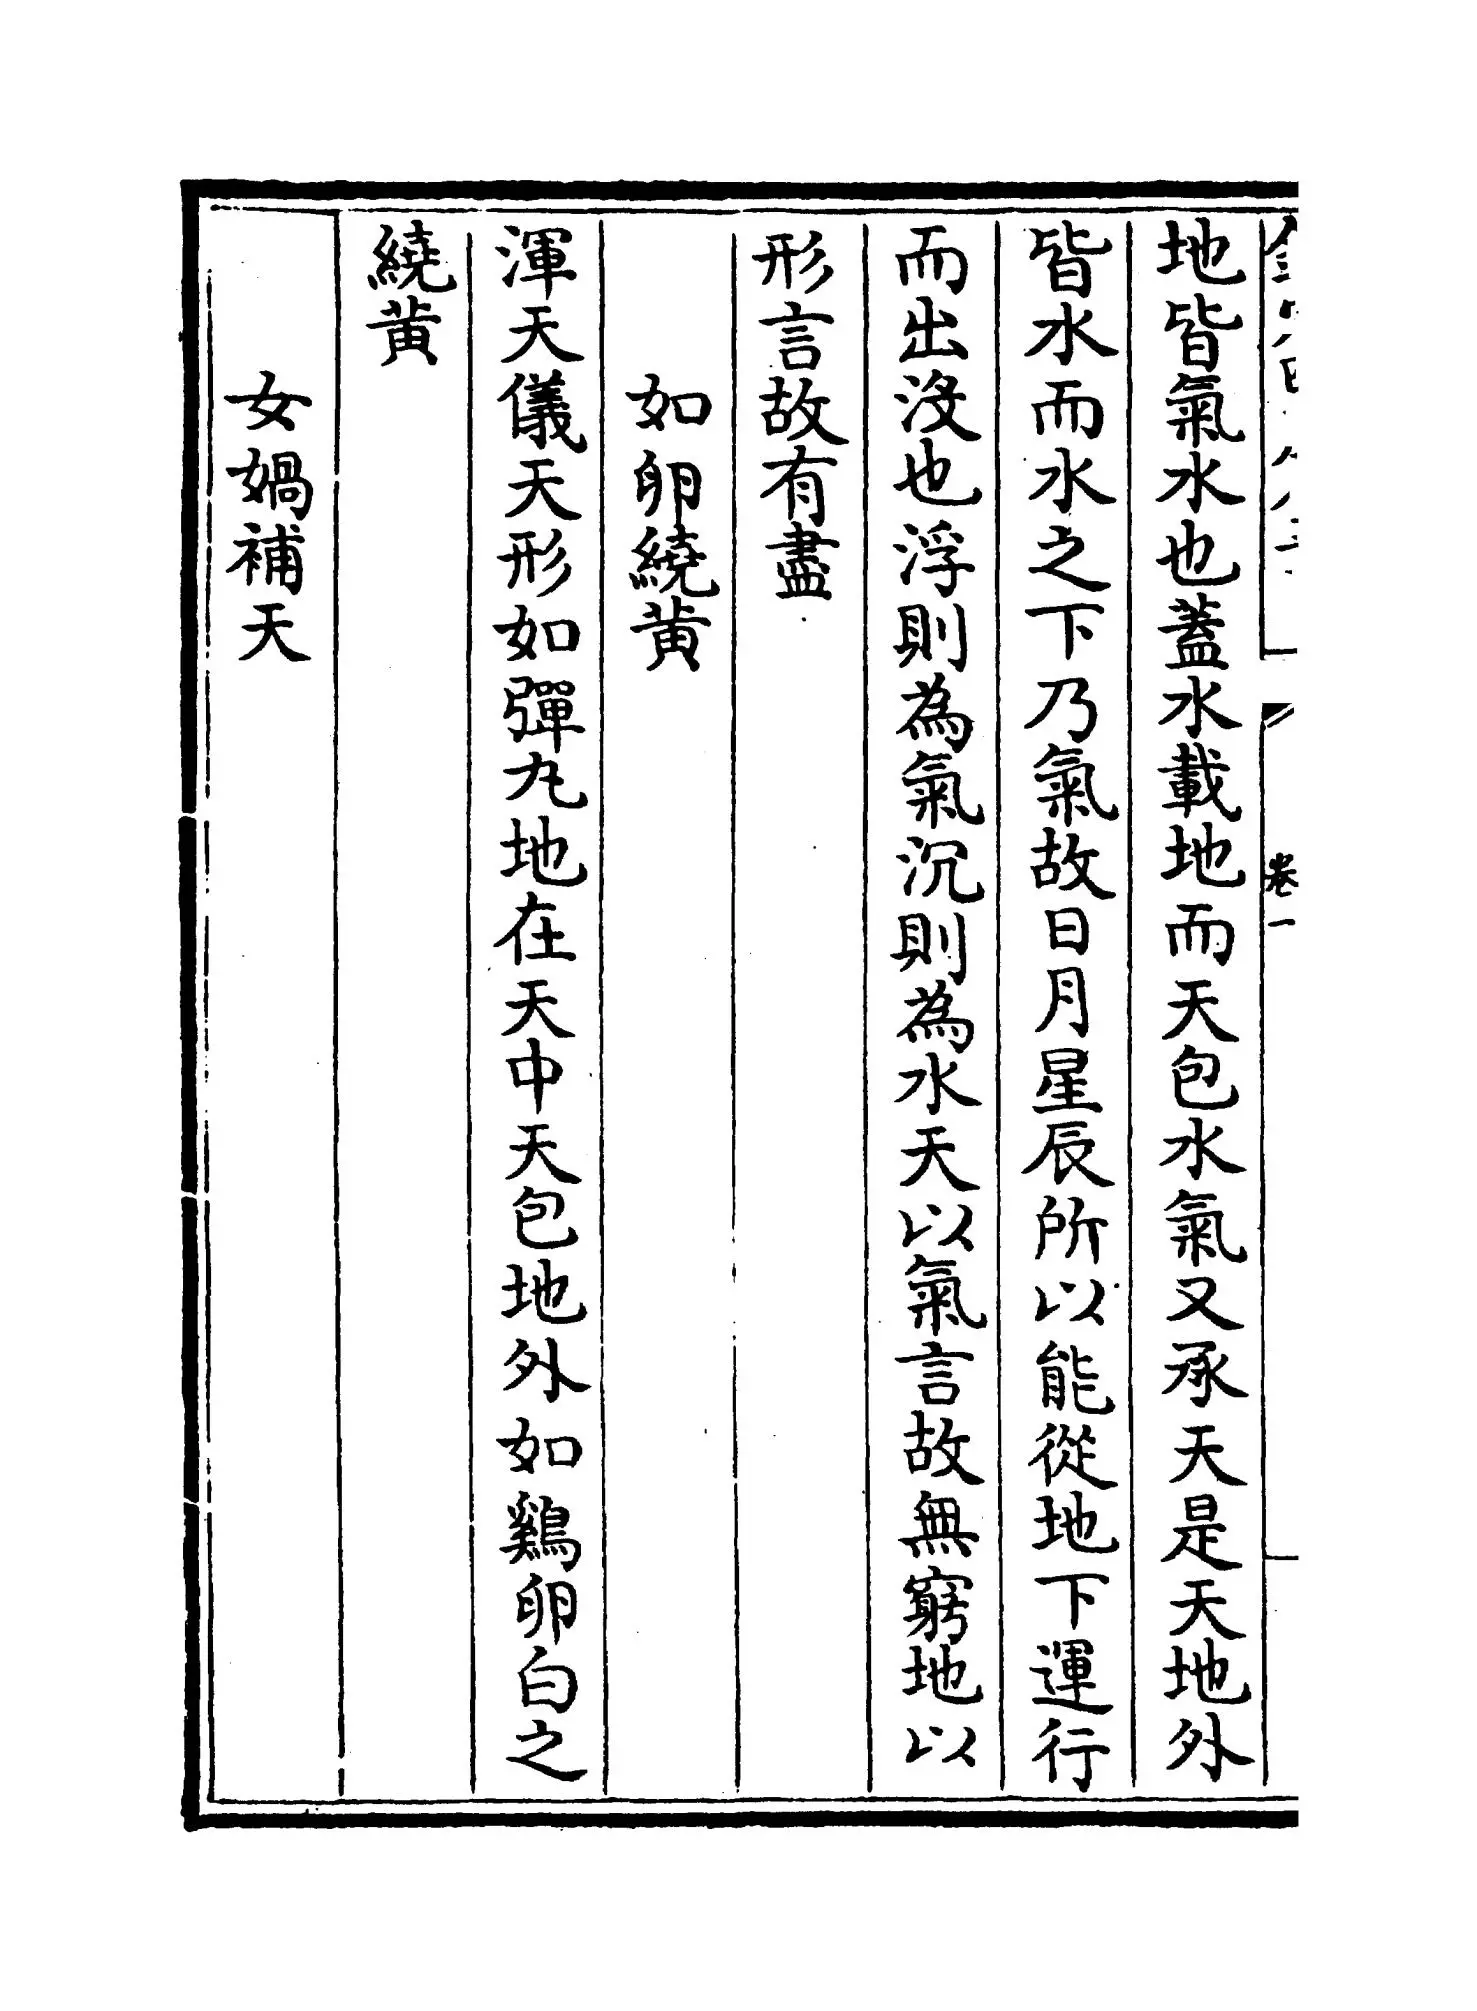 地皆氣水也蓋水載地而天包水氣又承天是天地外
皆水而水之下乃氣故日月星辰所以能從地下運行
而出沒也浮則為氣沉則為水天以氣言故無窮地以
形言故有盡
如卵繞黃
渾天儀天形如彈丸地在天中天包地外如鷄卵白之
繞黃
女媧補天
卷一